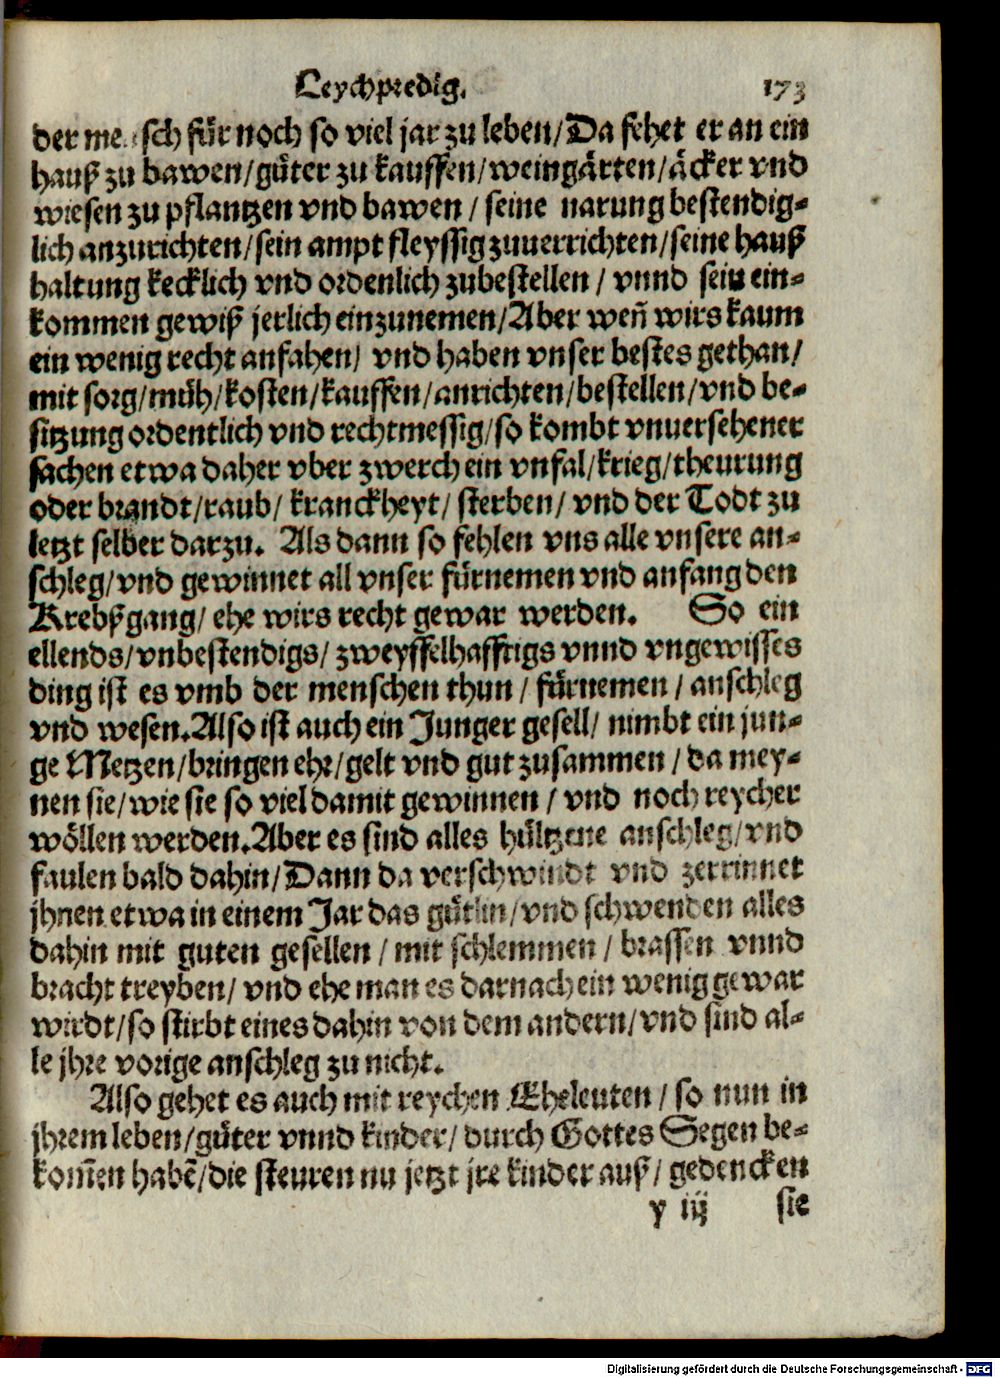 Leychpredig. 173
der mensch für noch so viel jar zu leben/Da fehet er an ein
hauß zu bawen/güter zu kauffen/weingärten/äcker vnd
wiesen zu pflantzen vnd bawen / seine narung bestendig-
lich anzurichten/sein ampt fleyssig zuuerrichten/seine hauß
haltung kecklich vnd ordenlich zubestellen / vnnd sein ein-
kommen gewiß jerlich einzunemen/Aber weñ wirs kaum
ein wenig recht anfahen/ vnd haben vnser bestes gethan/
mit sorg/müh/kosten/kauffen/anrichten/bestellen/vnd be-
sitzung ordentlich vnd rechtmessig/so kombt vnuersehener
sachen etwa daher vber zwerch ein vnfal/krieg/theurung
oder brandt/raub/ kranckheyt/ sterben/ vnd der Todt zu
letzt selber darzu. Als dann so fehlen vns alle vnsere an-
schleg/vnd gewinnet all vnser fürnemen vnd anfang den
Krebßgang/ ehe wirs recht gewar werden. So ein
ellends/vnbestendigs/ zweyffelhafftigs vnnd vngewisses
ding ist es vmb der menschen thun / fürnemen / anschleg
vnd wesen.Also ist auch ein Junger gesell/ nimbt ein jun-
ge Metzen/bringen ehr/gelt vnd gut zusammen / da mey-
nen sie/wie sie so viel damit gewinnen / vnd noch reycher
wöllen werden.Aber es sind alles hültzene anschleg/vnd
faulen bald dahin/Dann da verschwindt vnd zerrinnet
jhnen etwa in einem Jar das gütlin/vnd schwenden alles
dahin mit guten gesellen / mit schlemmen / brassen vnnd
bracht treyben/ vnd ehe man es darnach ein wenig gewar
wirdt/so stirbt eines dahin von dem andern/vnd sind al-
le jhre vorige anschleg zu nicht.
Also gehet es auch mit reychen Eheleuten / so nun in
jhrem leben/güter vnnd kinder/ durch Gottes Segen be-
kom̃en habẽ/die steuren nu jetzt jre kinder auß/ gedencken
y iij sie
Digitalisierung gefördert durch die Deutsche Forschungsgemeinschaft - DFG